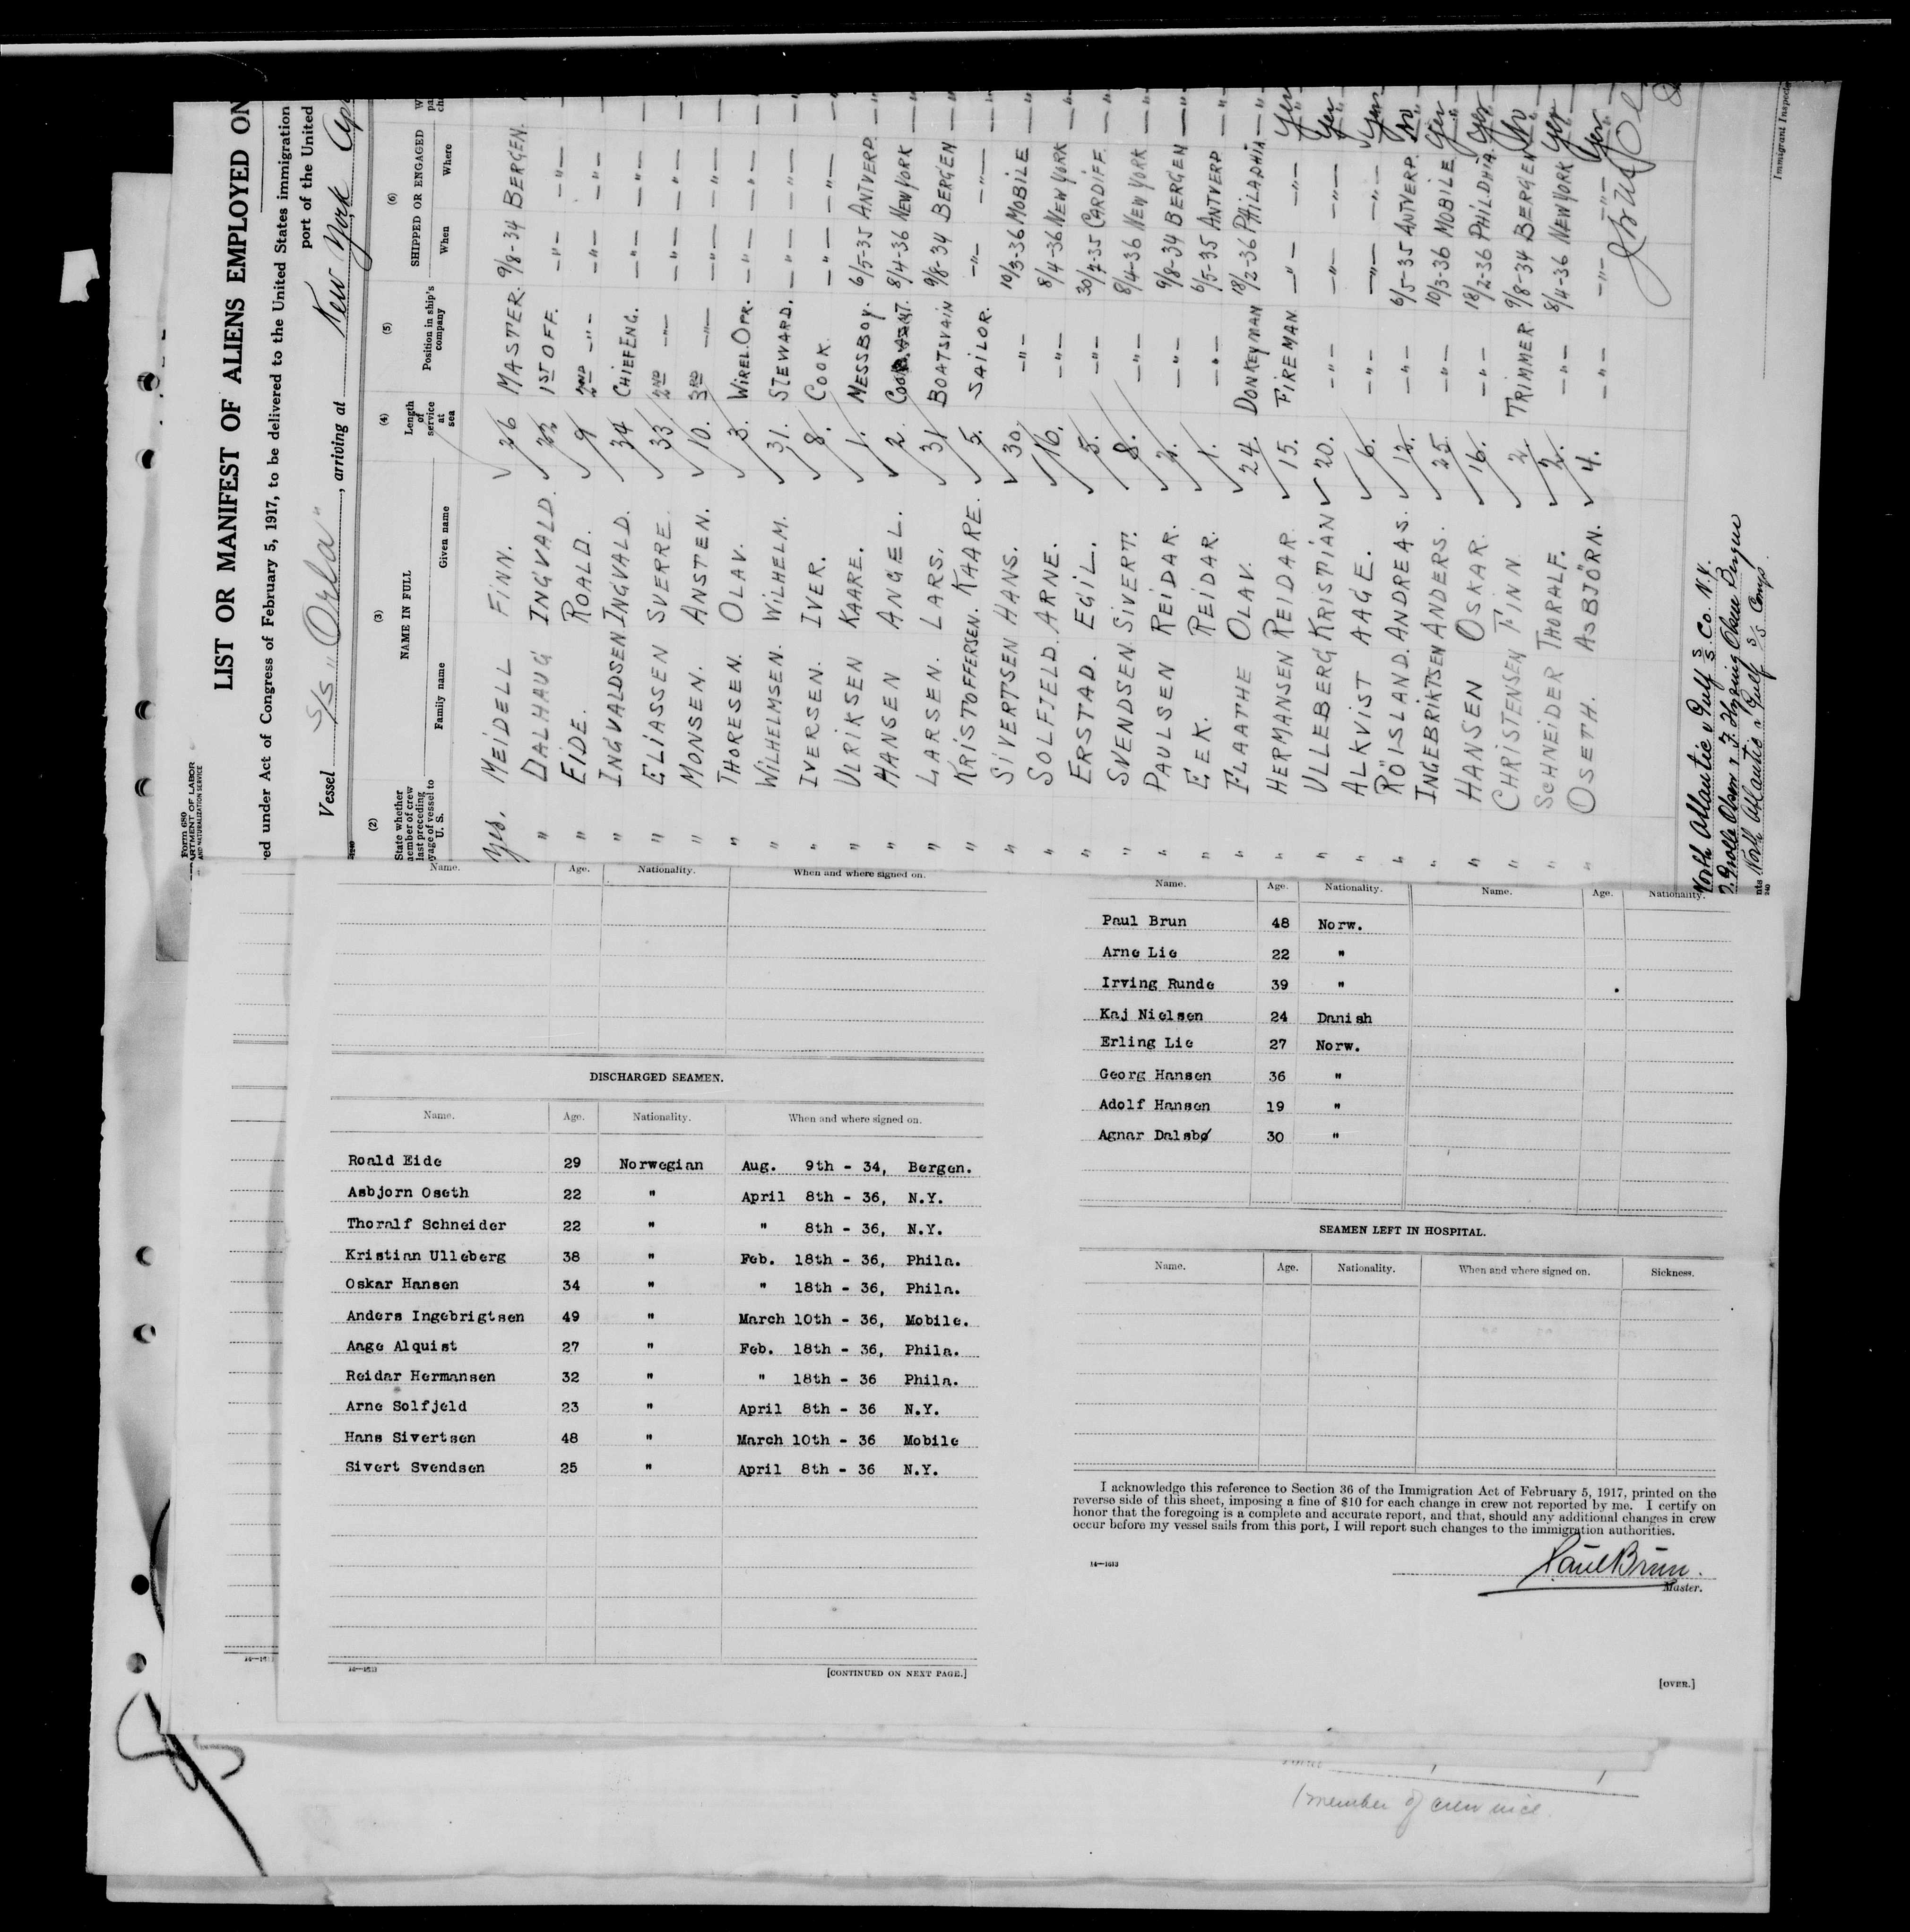 LIST OR MANIFEST OF ALIENS EMPLOYED ON
Form 680
AND NATURALIZATION SERVICE
red under Act of Congress of February 5, 1917, to be delivered to the United States immigration
port of the United
Vessel S/S "Orla", arriving at New York
(2) (3) (4) (5) (6)
State whether member of crew last preceding voyage of vessel to U. S. NAME IN FULL Family name Given name Length of service at sea Position in ship's company SHIPPED OR ENGAGED When Where
Yes. MEIDELL FINN. 26 MASTER. 9/8-34 BERGEN.
" DALHAUG INGVALD. 1ST OFF. -"- -"-
" EIDE. ROALD. 9 2ND -"- -"- -"-
" INGVALDSEN INGVALD. 34 CHIEF ENG. -"- -"-
" ELIASSEN SVERRE. 33 2ND -"- -"- -"-
" MONSEN. ANSTEN. 10. 3RD -"- -"- -"-
" THORESEN. OLAV. 3. WIREL. OPR. -"- -"-
" WILHELMSEN. WILHELM. 31. STEWARD. -"- -"-
" IVERSEN. IVER. 8. COOK. -"- -"-
" ULRIKSEN KAARE. 1. MESSBOY. 6/5-35 ANTVERP -"-
" HANSEN ANGEL. 2. 8/4-36 NEW YORK -"-
" LARSEN. LARS. 31 BOATSVAIN 9/8-34 BERGEN -"-
" KRISTOFFERSEN. KAARE. 5. SAILOR. -"- -"- -"-
" SIVERTSEN HANS. 30. -"- 10/3-36 MOBILE -"-
" SOLFJELD. ARNE. 16. -"- 8/4-36 NEW YORK -"-
" ERSTAD. EGIL. 5. -"- 30/7-35 CARDIFF -"-
" SVENDSEN SIVERT. 8. -"- 8/4-36 NEW YORK -"-
" PAULSEN REIDAR. -"- 9/8-34 BERGEN -"-
" EEK. REIDAR. 1. -"- 6/5-35 ANTVERP -"-
" FLAATHE OLAV. 24 DONKEYMAN 18/2-36 PHILADHIA -"-
" HERMANSEN REIDAR 15. FIREMAN -"- -"-
" ULLEBERG KRISTIAN 20. -"- -"- -"-
" ALKVIST AAGE. 6. -"- -"- -"-
" RÖISLAND. ANDREAS. 12. -"- 6/5-35 ANTVERP.
" INGEBRIKTSEN ANDERS. 25 -"- 10/3-36 MOBILE
" HANSEN OSKAR. 16. -"- 18/2-36 PHILDHIA.
" CHRISTENSEN FINN 2. TRIMMER 9/8-34 BERGEN
" SCHNEIDER THORALF. 2. -"- 8/4-36 NEW YORK
" OSETH. ASBJÖRN. 4. -"- -"- -"-
North Atlantic & Gulf S/S Co. N.Y.
North Atlantic & Gulf S/S Comp.
Immigrant Inspec
Name. Age. Nationality. When and where signed on.
DISCHARGED SEAMEN.
Name. Age. Nationality. When and where signed on.
Roald Eide 29 Norwegian Aug. 9th - 34, Bergen.
Asbjorn Oseth 22 " April 8th - 36, N.Y.
Thoralf Schneider 22 " " 8th - 36, N.Y.
Kristian Ulleberg 38 " Feb. 18th - 36, Phila.
Oskar Hansen 34 " " 18th - 36, Phila.
Anders Ingebrigtsen 49 " March 10th - 36, Mobile.
Aage Alquist 27 " Feb. 18th - 36, Phila.
Reidar Hermansen 32 " " 18th - 36 Phila.
Arne Solfjeld 23 " April 8th - 36 N.Y.
Hans Sivertsen 48 " March 10th - 36 Mobile
Sivert Svendsen 25 " April 8th - 36 N.Y.
14—1613
[CONTINUED ON NEXT PAGE.]
Name. Age. Nationality. Name. Age. Nationality.
Paul Brun 48 Norw.
Arne Lie 22 "
Irving Runde 39 "
Kaj Nielsen 24 Danish
Erling Lie 27 Norw.
Georg Hansen 36 "
Adolf Hansen 19 "
Agnar Dalsbø 30 "
SEAMEN LEFT IN HOSPITAL.
Name. Age. Nationality. When and where signed on. Sickness.
I acknowledge this reference to Section 36 of the Immigration Act of February 5, 1917, printed on the
reverse side of this sheet, imposing a fine of $10 for each change in crew not reported by me. I certify on
honor that the foregoing is a complete and accurate report, and that, should any additional changes in crew
occur before my vessel sails from this port, I will report such changes to the immigration authorities.
14—1613
Paul Brun.
Master.
[OVER.]
1 member of crew